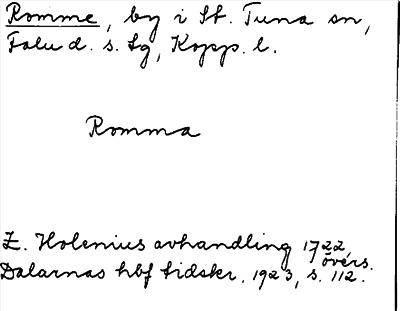 Romme, by i St. Tuna sn,
Falu d. s. lg, Kopp. l.
Romma
E. Holenius avhandling 1722,
övers.
Dalarnas hbf tidskr. 1923, s. 112.